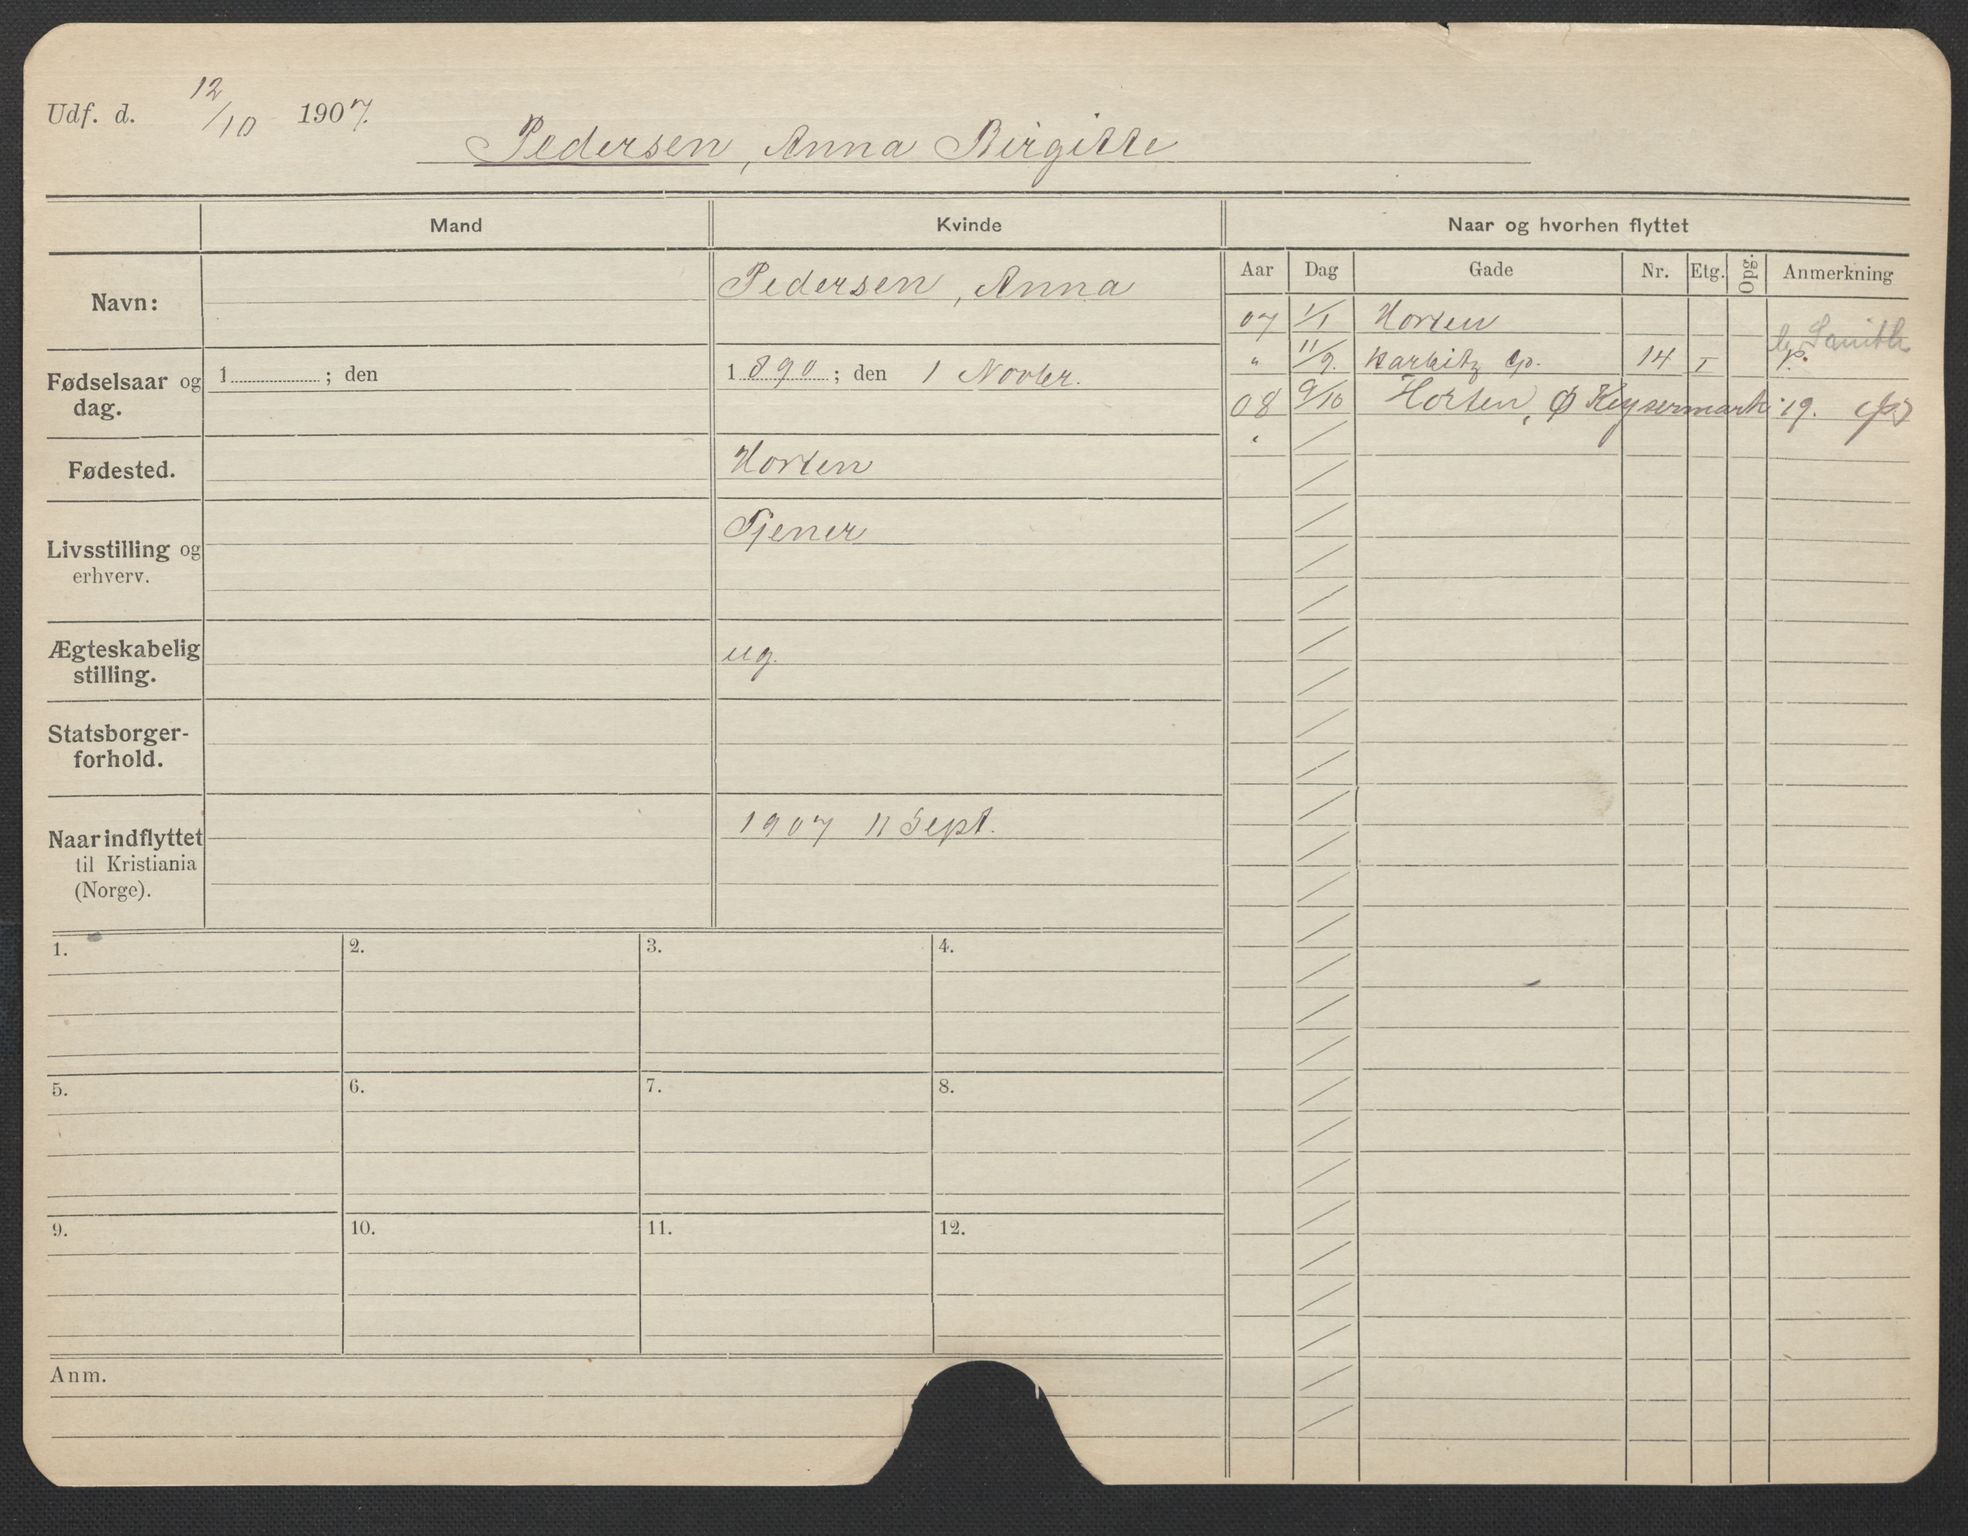 Udf. d. 12/10 1907.
Pedersen, Anna Birgitte
Mand
Kvinde
Naar og hvorhen flyttet
Navn:
Pedersen, Anna
Aar Dag Gade Nr. Etg. Opg. Anmerkning
07 1/1 Horten
b. Smith
" 11/9. Karbitz 14 I p.
Fødselsaar og dag.
1 ; den
1890 ; den 1 Novbr.
08 9/10 Horten, Ø Keysermark 19.
Fødested.
Horten
Livsstilling og
erhverv.
Tjener
Ægteskabelig
stilling.
ug.
Statsborger-
forhold.
Naar indflyttet
til Kristiania
(Norge).
1907 11 Sept.
1. 2. 3. 4.
5. 6. 7. 8.
9. 10. 11. 12.
Anm.